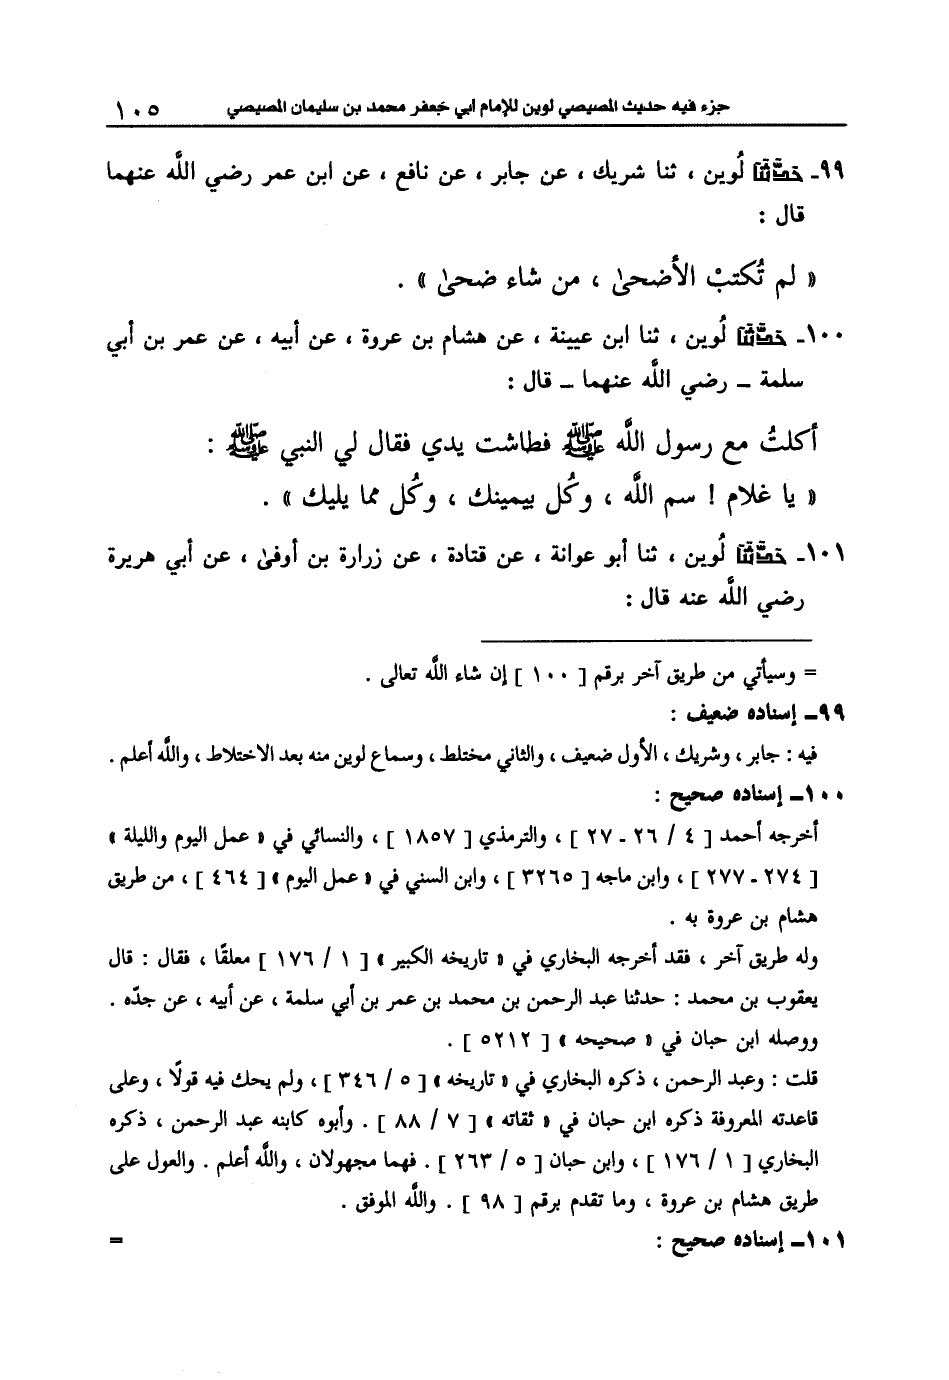 جزء فيه حديث المصيصي لوين للإمام ابي جعفر محمد بن سليمان المصيصي ١٠٥
٩٩ـ حدَّثنا لُوين ، ثنا شريك ، عن جابر ، عن نافع ، عن ابن عمر رضي اللَّه عنهما
قال :
« لم تُكتبْ الأضحىٰ ، من شاء ضحىٰ » .
١٠٠ـ حدَّثنا لُوين ، ثنا ابن عيينة ، عن هشام بن عروة ، عن أبيه ، عن عمر بن أبي
سلمة ـ رضي اللَّه عنهما ـ قال :
أكلتُ مع رسول اللَّه ﷺ فطاشت يدي فقال لي النبي ﷺ :
« يا غلام ! سم اللَّه ، وكُل بيمينك ، وكُل مما يليك » .
١٠١ـ حدَّثنا لُوين ، ثنا أبو عوانة ، عن قتادة ، عن زرارة بن أوفىٰ ، عن أبي هريرة
رضي اللَّه عنه قال :
= وسيأتي من طريق آخر برقم [ ١٠٠ ] إن شاء اللَّه تعالى .
٩٩ـ إسناده ضعيف :
فيه : جابر ، وشريك ، الأول ضعيف ، والثاني مختلط ، وسماع لوين منه بعد الاختلاط ، واللَّه أعلم .
١٠٠ـ إسناده صحيح :
أخرجه أحمد [ ٤ / ٢٦ ـ ٢٧ ] ، والترمذي [ ١٨٥٧ ] ، والنسائي في « عمل اليوم والليلة »
[ ٢٧٤ ـ ٢٧٧ ] ، وابن ماجه [ ٣٢٦٥ ] ، وابن السني في « عمل اليوم » [ ٤٦٤ ] ، من طريق
هشام بن عروة به .
وله طريق آخر ، فقد أخرجه البخاري في « تاريخه الكبير » [ ١ / ١٧٦ ] معلقًا ، فقال : قال
يعقوب بن محمد : حدثنا عبد الرحمن بن محمد بن عمر بن أبي سلمة ، عن أبيه ، عن جدّه .
ووصله ابن حبان في « صحيحه » [ ٥٢١٢ ] .
قلت : وعبد الرحمن ، ذكره البخاري في « تاريخه » [ ٥ / ٣٤٦ ] ، ولم يحك فيه قولًا ، وعلى
قاعدته المعروفة ذكره ابن حبان في « ثقاته » [ ٧ / ٨٨ ] . وأبوه كابنه عبد الرحمن ، ذكره
البخاري [ ١ / ١٧٦ ] ، وابن حبان [ ٥ / ٢٦٣ ] . فهما مجهولان ، واللَّه أعلم . والعول على
طريق هشام بن عروة ، وما تقدم برقم [ ٩٨ ] . واللَّه الموفق .
١٠١ـ إسناده صحيح : =